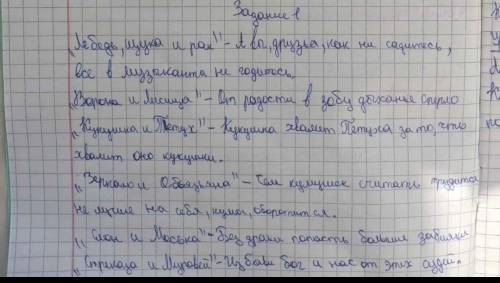 Задание 1
„Лебедь, щука и рак" - А вы, друзья, как ни садитесь,
все в музыканты не годитесь.
„Ворона и Лисица" - От радости в зобу дыханье сперло
„Кукушка и Петух" - Кукушка хвалит Петуха за то, что
хвалит оно кукушки.
„Зеркало и Обезьяна" - Чем кумушек считать трудится
не лучше на себя, кума, оборотится.
„Слон и Моська" - Без драки попасть большие забияки
„Стрекоза и Муравей" - Избави бог и нас от этих судей.